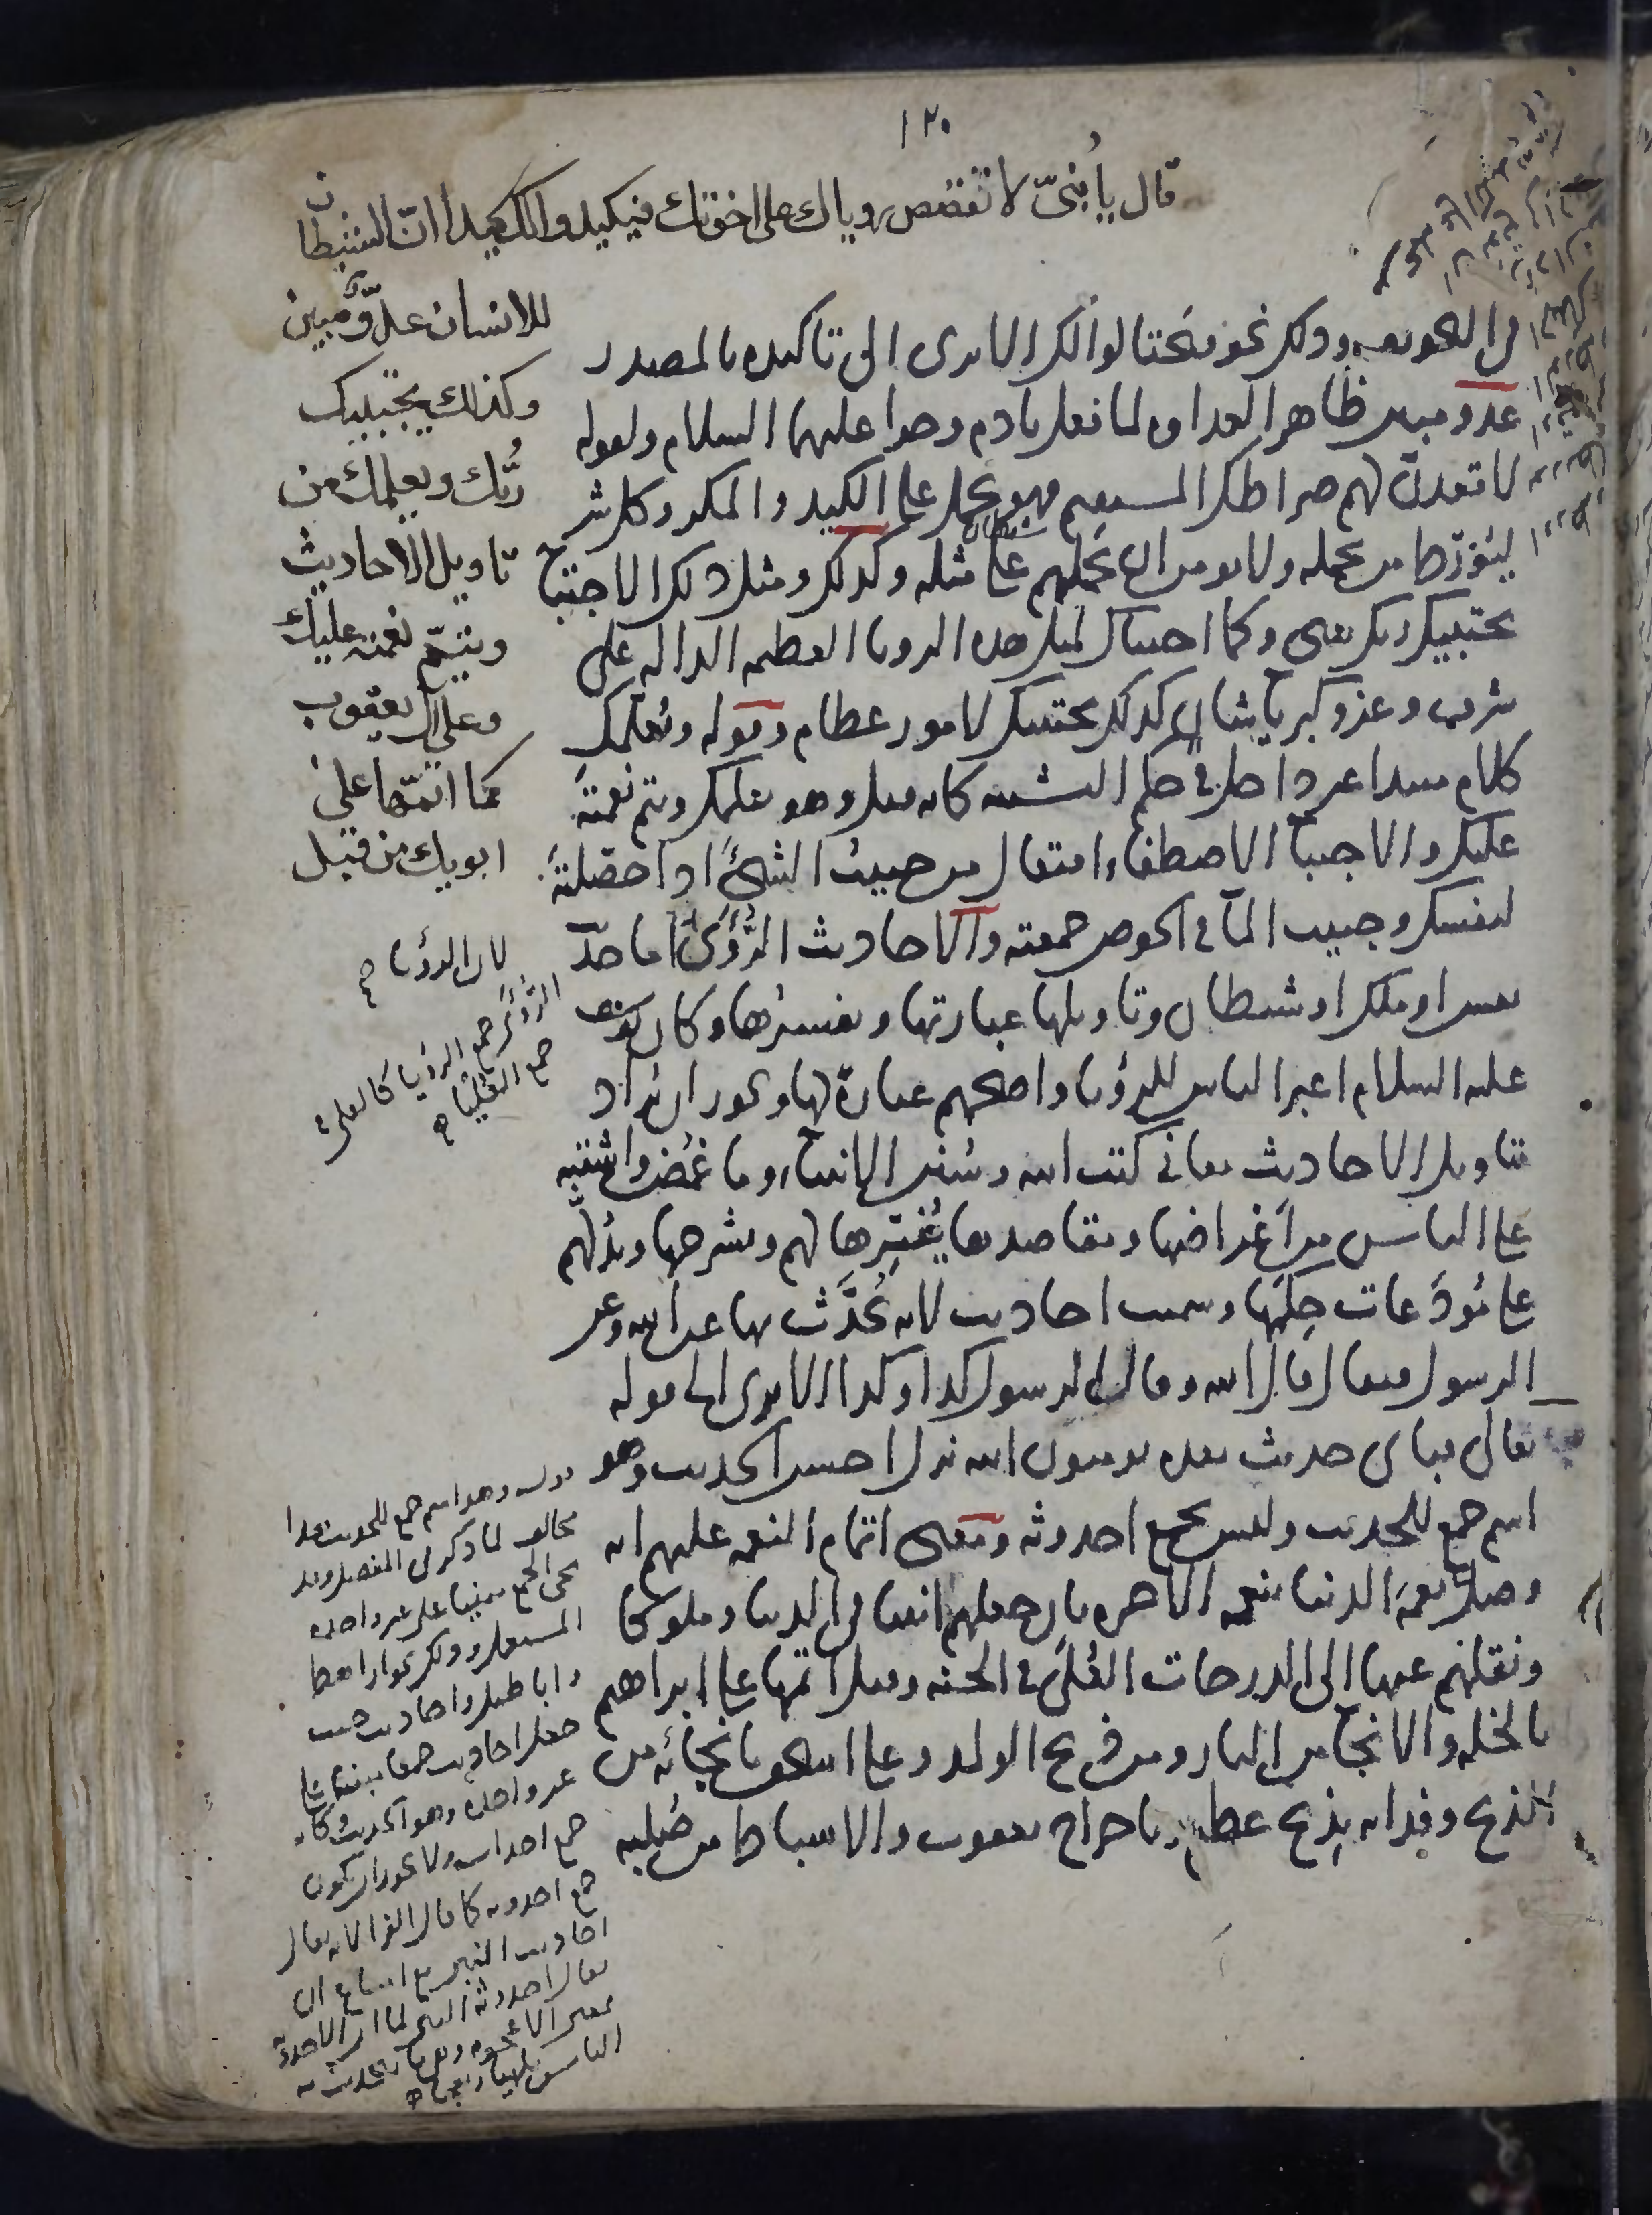 ١٢٠
قال يا بُنيّ لا تقصص رؤياك على اخوتك فيكيدوا لك كيدا انّ الشيطان
للانسان عدوّ مبين
وكذلك يجتبيك
ربّك ويعلمك من
تاويل الاحاديث
ويتمّ نعمته عليك
وعلى آل يعقوب
كما اتمّها على
ابويك من قبل
فى التخويف وذلك نحو فيحتالوا لك الا ترى الى تاكيده بالمصدر
عدو مبين ظاهر العداوة لما فعل بادم وحوا عليهما السلام ولقوله
لاقعدنّ لهم صراطك المستقيم فهو يحمل على الكيد والمكر وكل شر
ليُورّط من يحمله ولا يومن ان يحملهم على مثله وكذلك ومثل ذلك الاجتباء
يجتبيك ربك يعنى وكما اجتباك لمثل هذه الرويا العظيمه الداله على
شرف وعز وكبرياء شان كذلك يجتبيك لامور عظام وقوله ويُعلّمك
كلام مبتدا غير داخل فى حكم التشبيه كانه قيل وهو يعلمك ويتم نعمته
عليك والاجتبا الاصطفاء افتعال من جبيت الشئ اذا حصّلته
لنفسك وجبيت الما فى الحوض جمعته والاحاديث الرُّؤى اما حديث
نفس او ملك او شيطان وتاويلها عبارتها وتفسيرها وكان يوسف
عليه السلام اعبر الناس للرؤيا واصحهم عبارة لها ويجوز ان يُراد
بتاويل الاحاديث معانى كتب الله وسُنن الانبياء وما غمُض واشتبه
على الناس من اغراضها ومقاصدها يُفسّرها لهم ويشرحها ويدُلهم
على مُودَعات حِكَمها وسميت احاديث لانه يُحدَّث بها عن الله وعن
الرسول فيقال قال الله وقال الرسول كذا وكذا الا ترى الى قوله
تعالى فباى حديث بعده يومنون الله نزل احسن الحديث وهو
اسم جمع للحديث وليس بجمع احدوثه ومعنى اتمام النعمه عليهم انه
وصل نعمة الدنيا بنعمه الاخره بان جعلهم انبيا فى الدنيا وملوكا
ونقلهم عنها الى الدرجات العُلى فى الجنه وقيل اتمها على ابراهيم
بالخله والانجا من النار ومن ذبح الولد وعلى اسحق بانجائه من
الذبح وفدائه بذِبح عظيم وباخراج يعقوب والاسباط من صُلبه
لان الرؤيا
الرؤى جمع الرؤيا كالعلى
جمع العليا
قوله وهو اسم جمع للحديث هذا
مخالف لما ذكر فى المفصل وقد
يجى الجمع مبنيا على غير واحده
المستعمل وذلك نحو اراهط
واباطيل واحاديث حيث
جعل احاديث جمعا مبنيا على
غير واحده وهو الحديث وكانه
جمع احداث ولا يجوز ان يكون
جمع احدوثه كما قال الفرا لانه يقال
احاديث النبى مع امتناع ان
يقال احدوثة النبى لما ان الاحدوثة
الناس